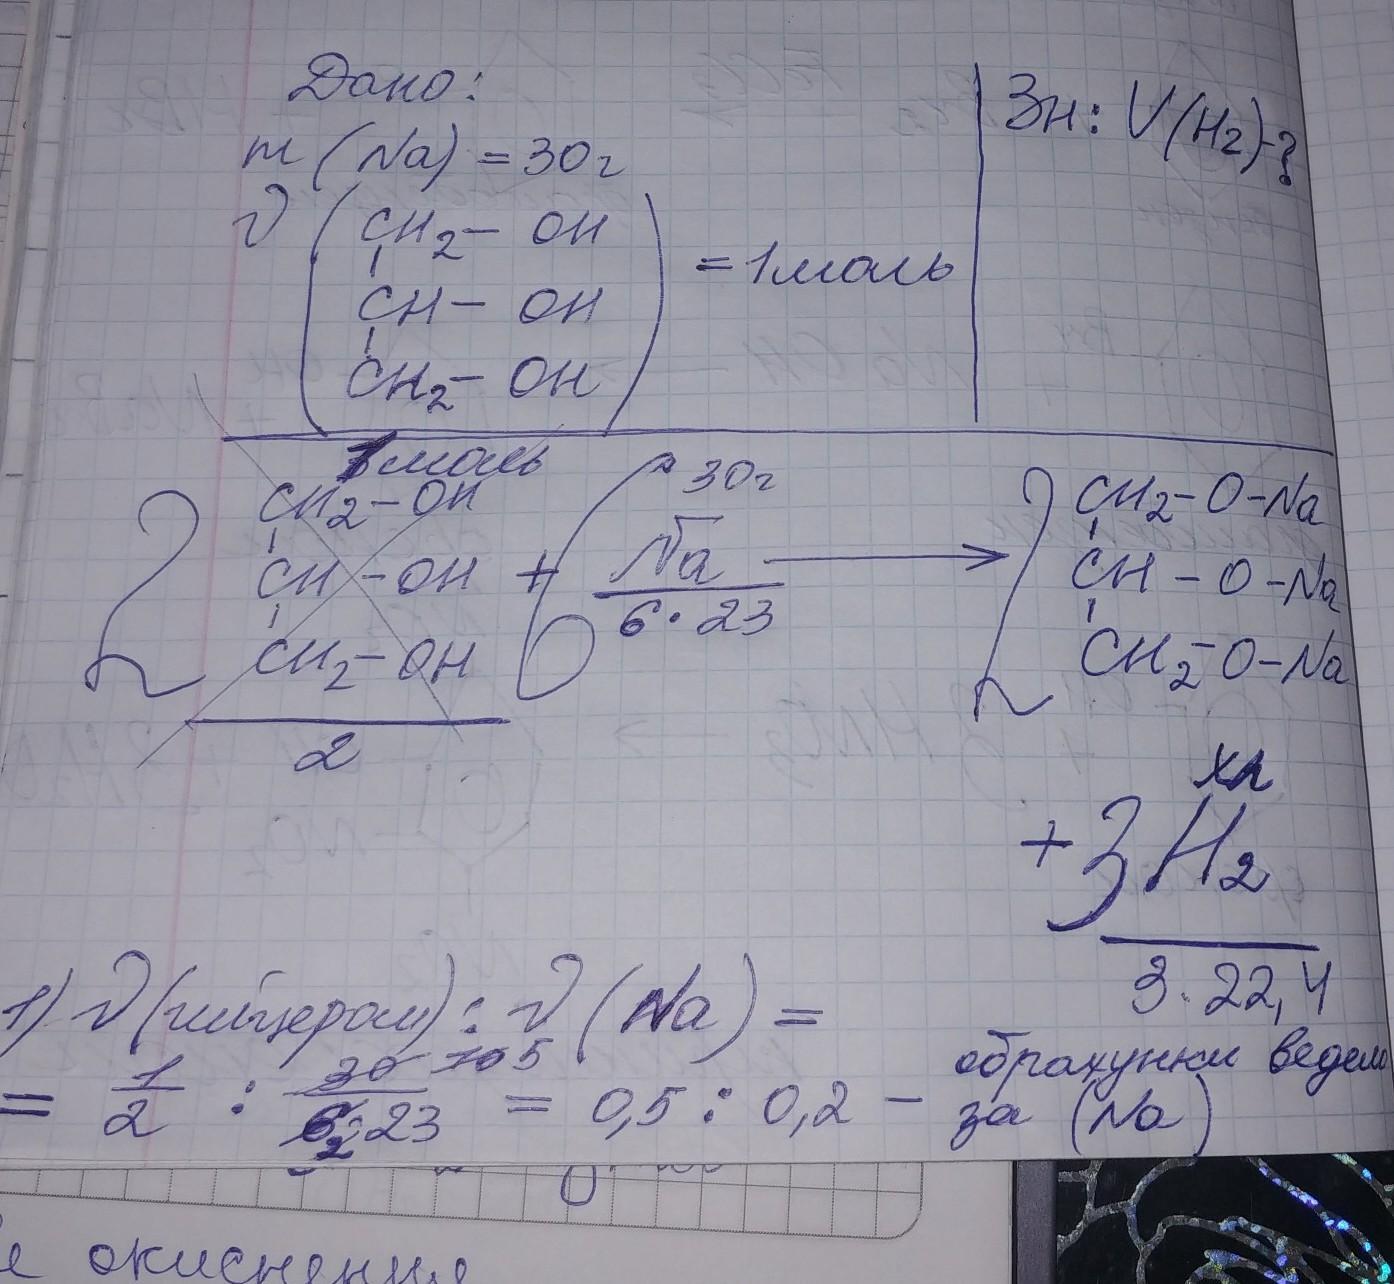 Дано:
m (Na) = 30г
ν ( CH2 – OH
CH – OH
CH2 – OH ) = 1 моль
Зн: V(H2)-?
1 моль
2 CH2 – OH
CH – OH
CH2 – OH
2
+ 6 Na
30г
6 · 23
→ 2 CH2 – O – Na
CH – O – Na
CH2 – O – Na
xл
+ 3 H2
3 · 22,4
1) ν (гліцерол) : ν (Na) =
= 1/2 : 30/6·23 10 5 2 = 0,5 : 0,2 – обрахунки ведем
за (Na)
е окиснение